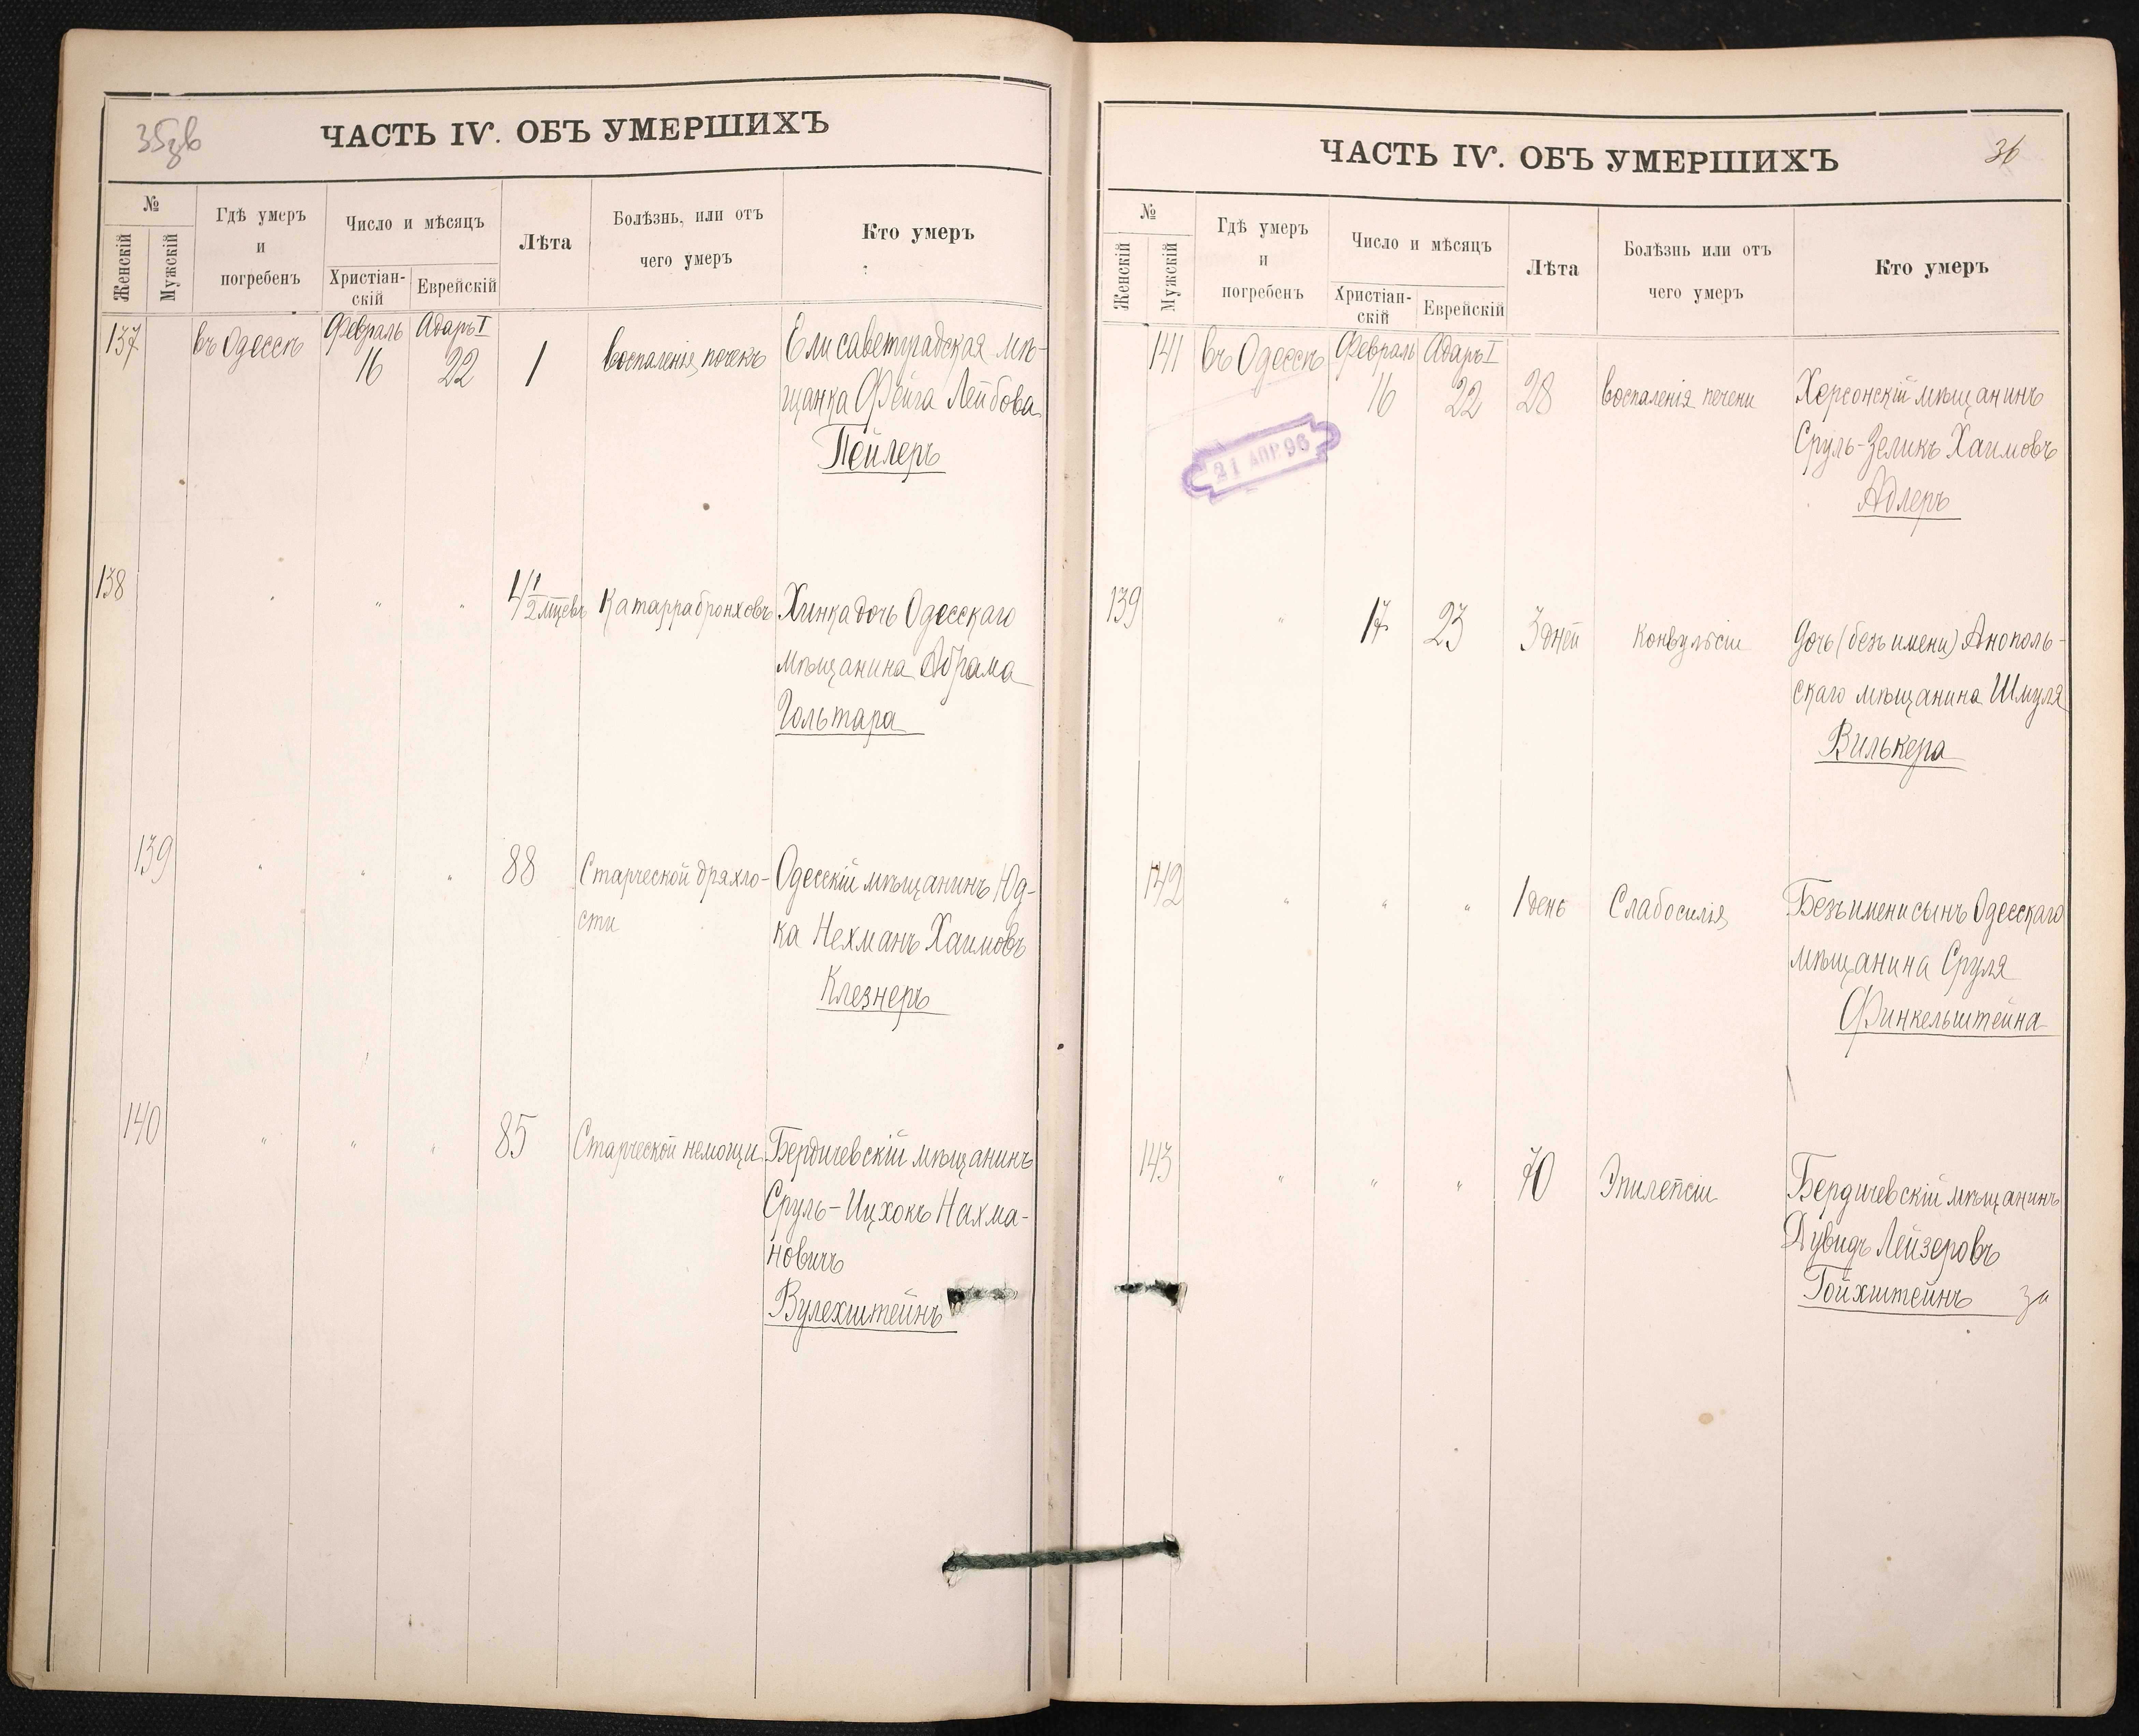 35зв
ЧАСТЬ IV. ОБЪ УМЕРШИХЪ
№
Женскій
Мужскій
Гдѣ умеръ
и
погребенъ
Число и мѣсяцъ
Христіан-
скій
Еврейскій
Лѣта
Болѣзнь, или отъ
чего умеръ
Кто умеръ
137 въ Одессѣ Февраль Адаръ I Елисаветградская мѣ-
16 22 1 воспаленія почекъ
щанка Фейга Лейбова
Пейлеръ
138 " " " 4 1/2 мѣсев. Катарра бронховъ Хинка дочь Одесскаго
мѣщанина Абрама
Гольтара
139 " " " 88 Старческой дряхло- Одесскій мѣщанинъ Юд-
сти ка Нехманъ Хаимовъ
Клезнеръ
140 " " " 85 Старческой немощи Бердичевскій мѣщанинъ
Сруль-Ицхокъ Нахма-
новичъ
Вулехштейнъ
ЧАСТЬ IV. ОБЪ УМЕРШИХЪ
36
№
Женскій
Мужскій
Гдѣ умеръ
и
погребенъ
Число и мѣсяцъ
Христіан-
скій
Еврейскій
Лѣта
Болѣзнь или отъ
чего умеръ
Кто умеръ
141 въ Одессѣ Февраль Адаръ I
16 22 28 воспаленія печени Херсонскій мѣщанинъ
Сруль-Зеликъ Хаимовъ
Адлеръ
21 АПР 96
139 " 17 23 3 дней Конвульсіи Дочь (безъ имени) Анополь-
скаго мѣщанина Шмуля
Вилькера
142 " " " 1 день Слабосилія Безъ имени сынъ Одесскаго
мѣщанина Сруля
Финкельштейна
143 " " " 70 Эпилепсіи Бердичевскій мѣщанинъ
Дувидъ Лейзеровъ
Гойхштейнъ за